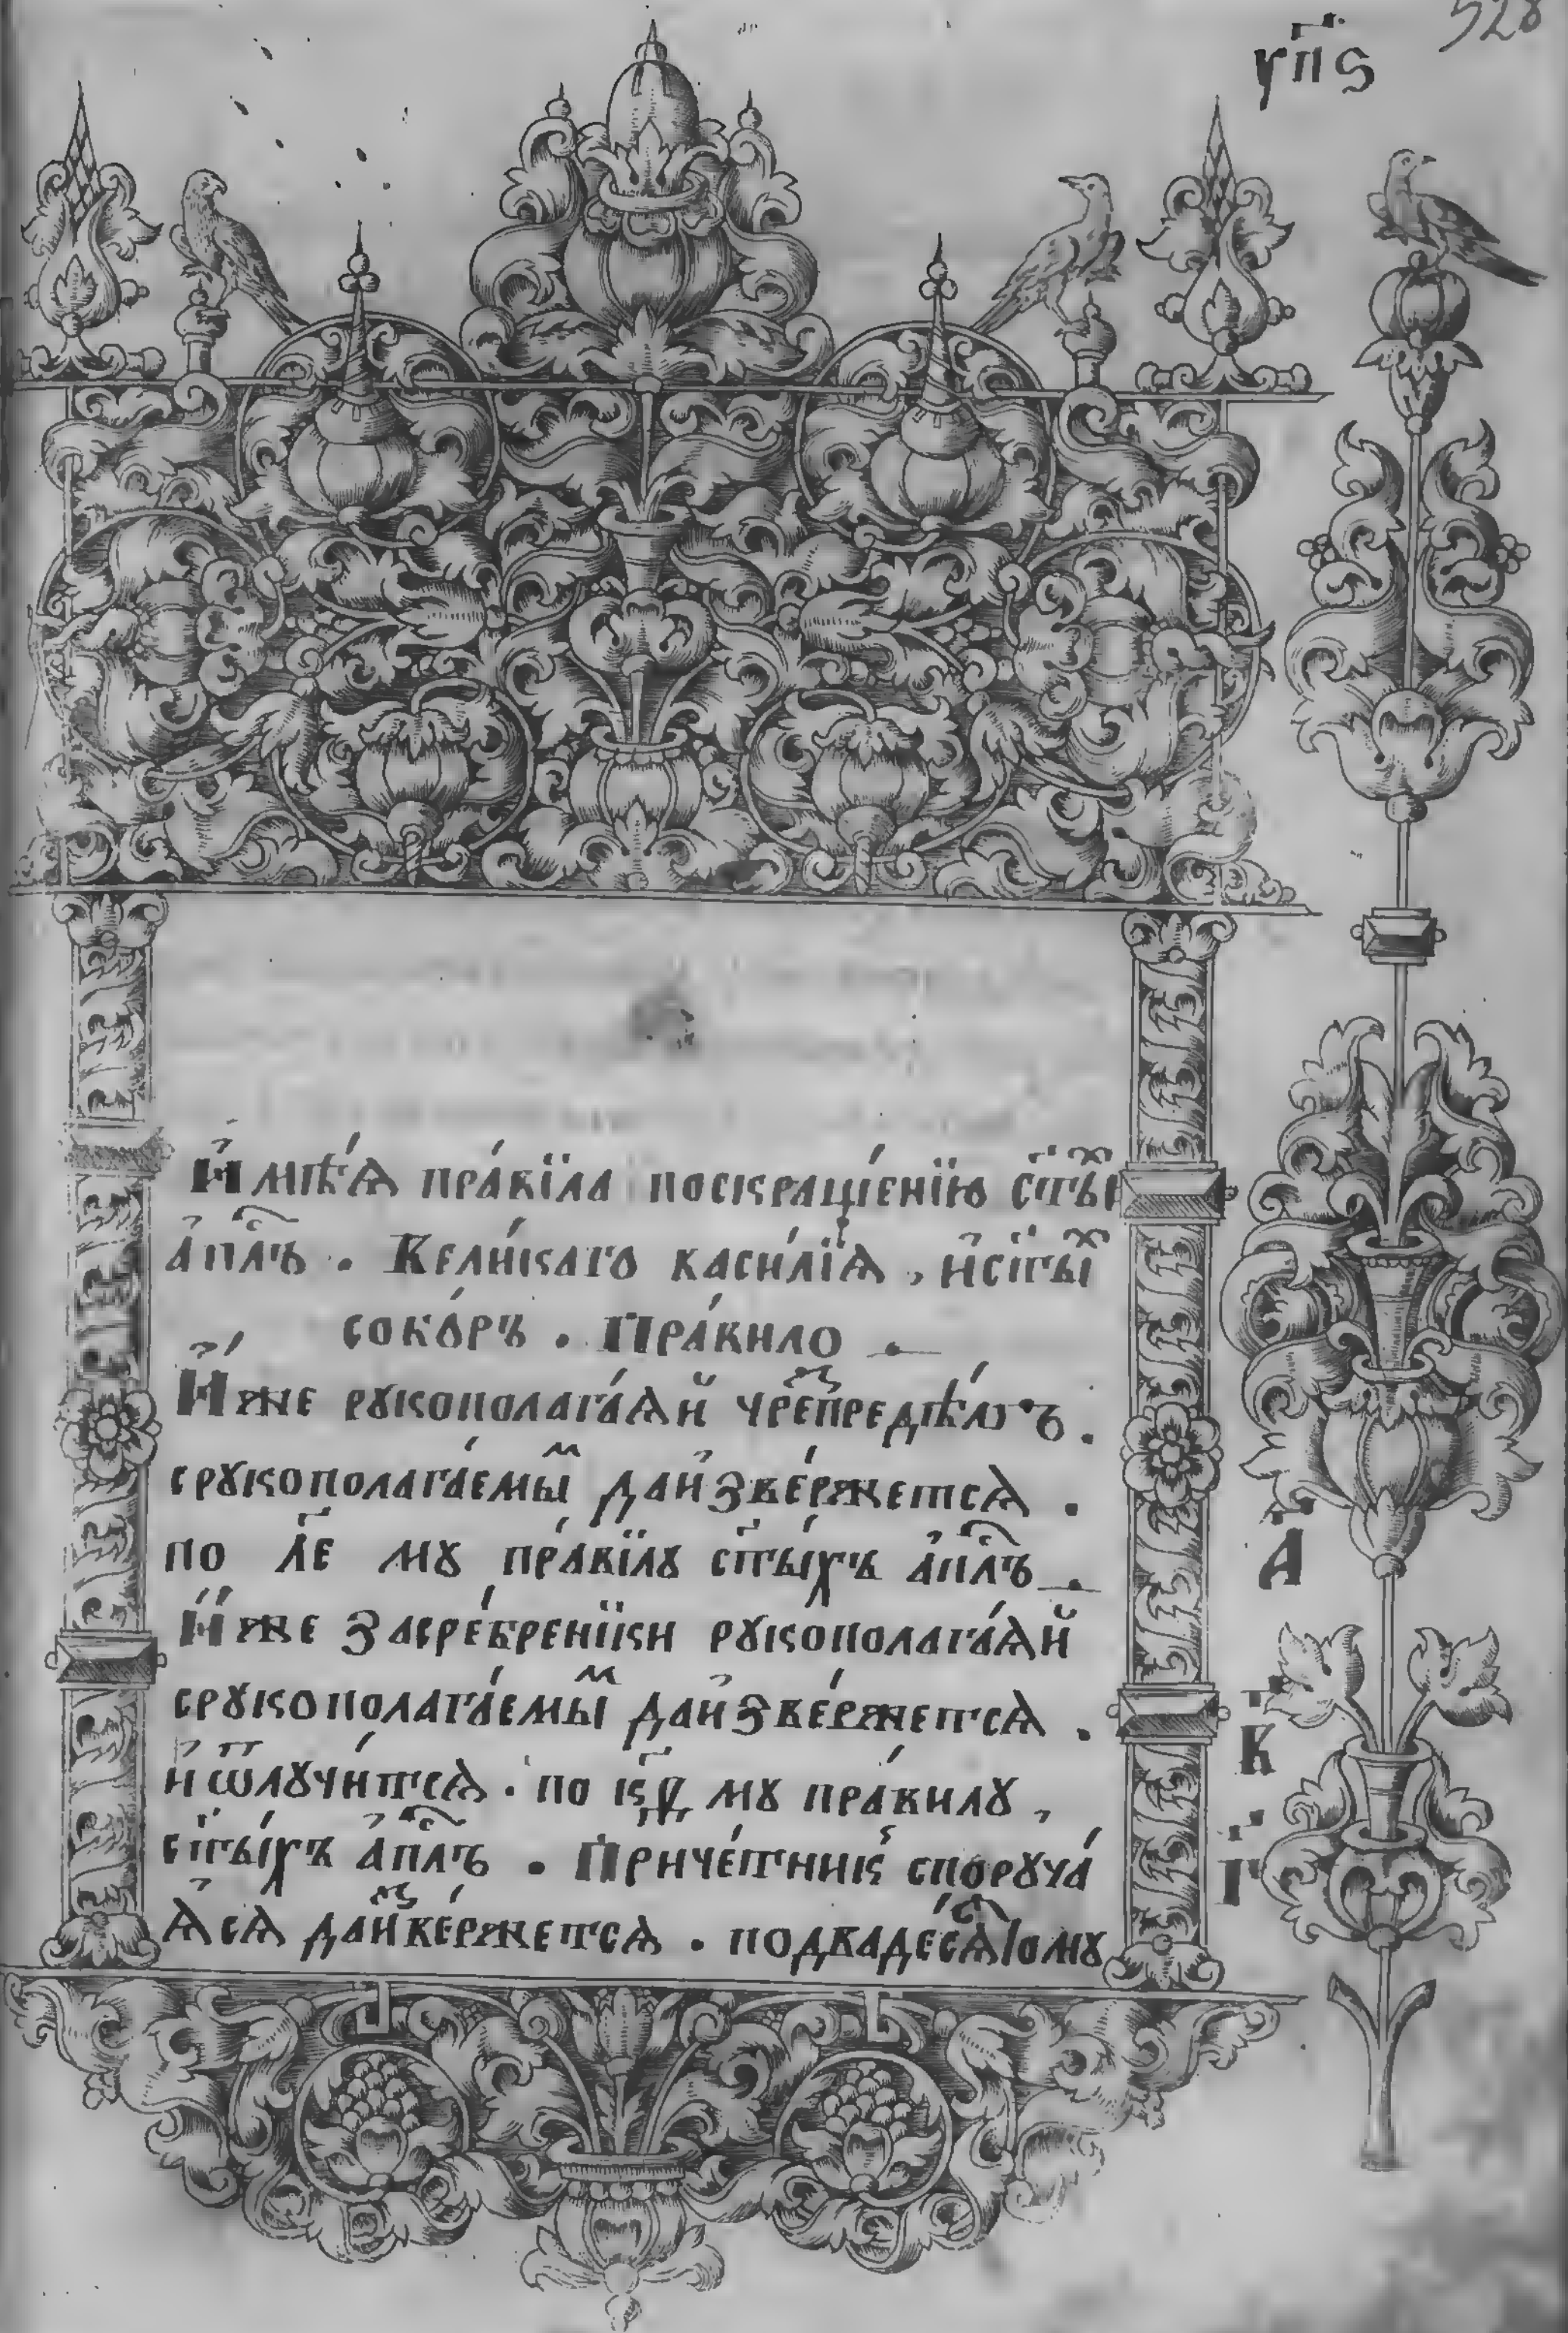 528
уп҃ѕ
И҆мѣ́ѧ пра́вїла посокраще́нїю ст҃ы́х
а҆пⷭ҇лъ . Вели́каго васи́лїѧ , и҆ст҃ы́х
собо́ръ . Пра́вило .
И҆́же рꙋкополага́ѧй чре́зпредѣ́лъ .
срꙋкополага́емыⷨ даи҆зве́ржетсѧ .
по л҃е мꙋ пра́вїлꙋ ст҃ы́хъ а҆пⷭ҇лъ .
И҆́же засре́бренїки рꙋкополага́ѧй
срꙋкополага́емыⷨ даи҆зве́ржетсѧ .
и҆ѿлꙋчи́тсѧ . по к҃д мꙋ пра́вилꙋ ,
ст҃ы́хъ а҆пⷭ҇лъ . Приче́тникъ спорꙋча́
ѧ҆сѧ даи҆зве́ржетсѧ . подвадесѧ́томꙋ
А҃
В҃
Г҃